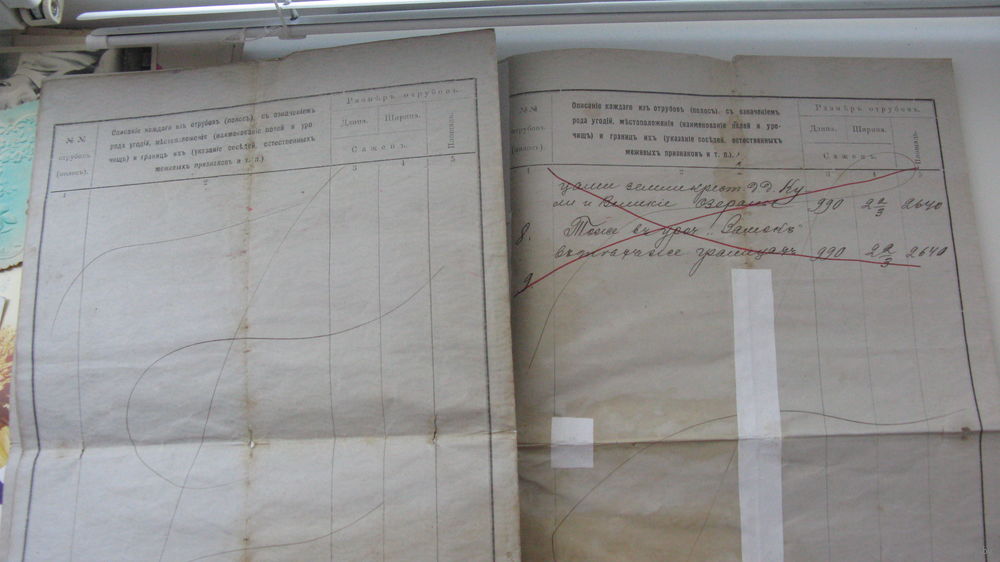 № №
отрубовъ
(полосъ).
Описаніе каждаго изъ отрубовъ (полосъ), съ означеніемъ
рода угодій, мѣстоположенія (наименованіе полей и уро-
чищъ) и границъ ихъ (указаніе сосѣдей, естественныхъ
межевыхъ признаковъ и т. п.).
Размѣръ отрубовъ.
Длина.
Ширина.
Сажень.
Площадь.
1
2
3
4
5
№№
отрубовъ
(полосъ).
Описаніе каждаго изъ отрубовъ (полосъ), съ означеніемъ
рода угодій, мѣстоположенія (наименованіе полей и уро-
чищъ) и границъ ихъ (указаніе сосѣдей, естественныхъ
межевыхъ признаковъ и т. п.).
Размѣръ отрубовъ.
Длина.
Ширина.
Сажень.
Площадь.
1
2
3
4
5
цами земли крест. д.д. Ку
ли и Великіе 990 2 2/3 2640
8. Тоже въ уроч. "
границахъ 990 2 2/3 2640
9